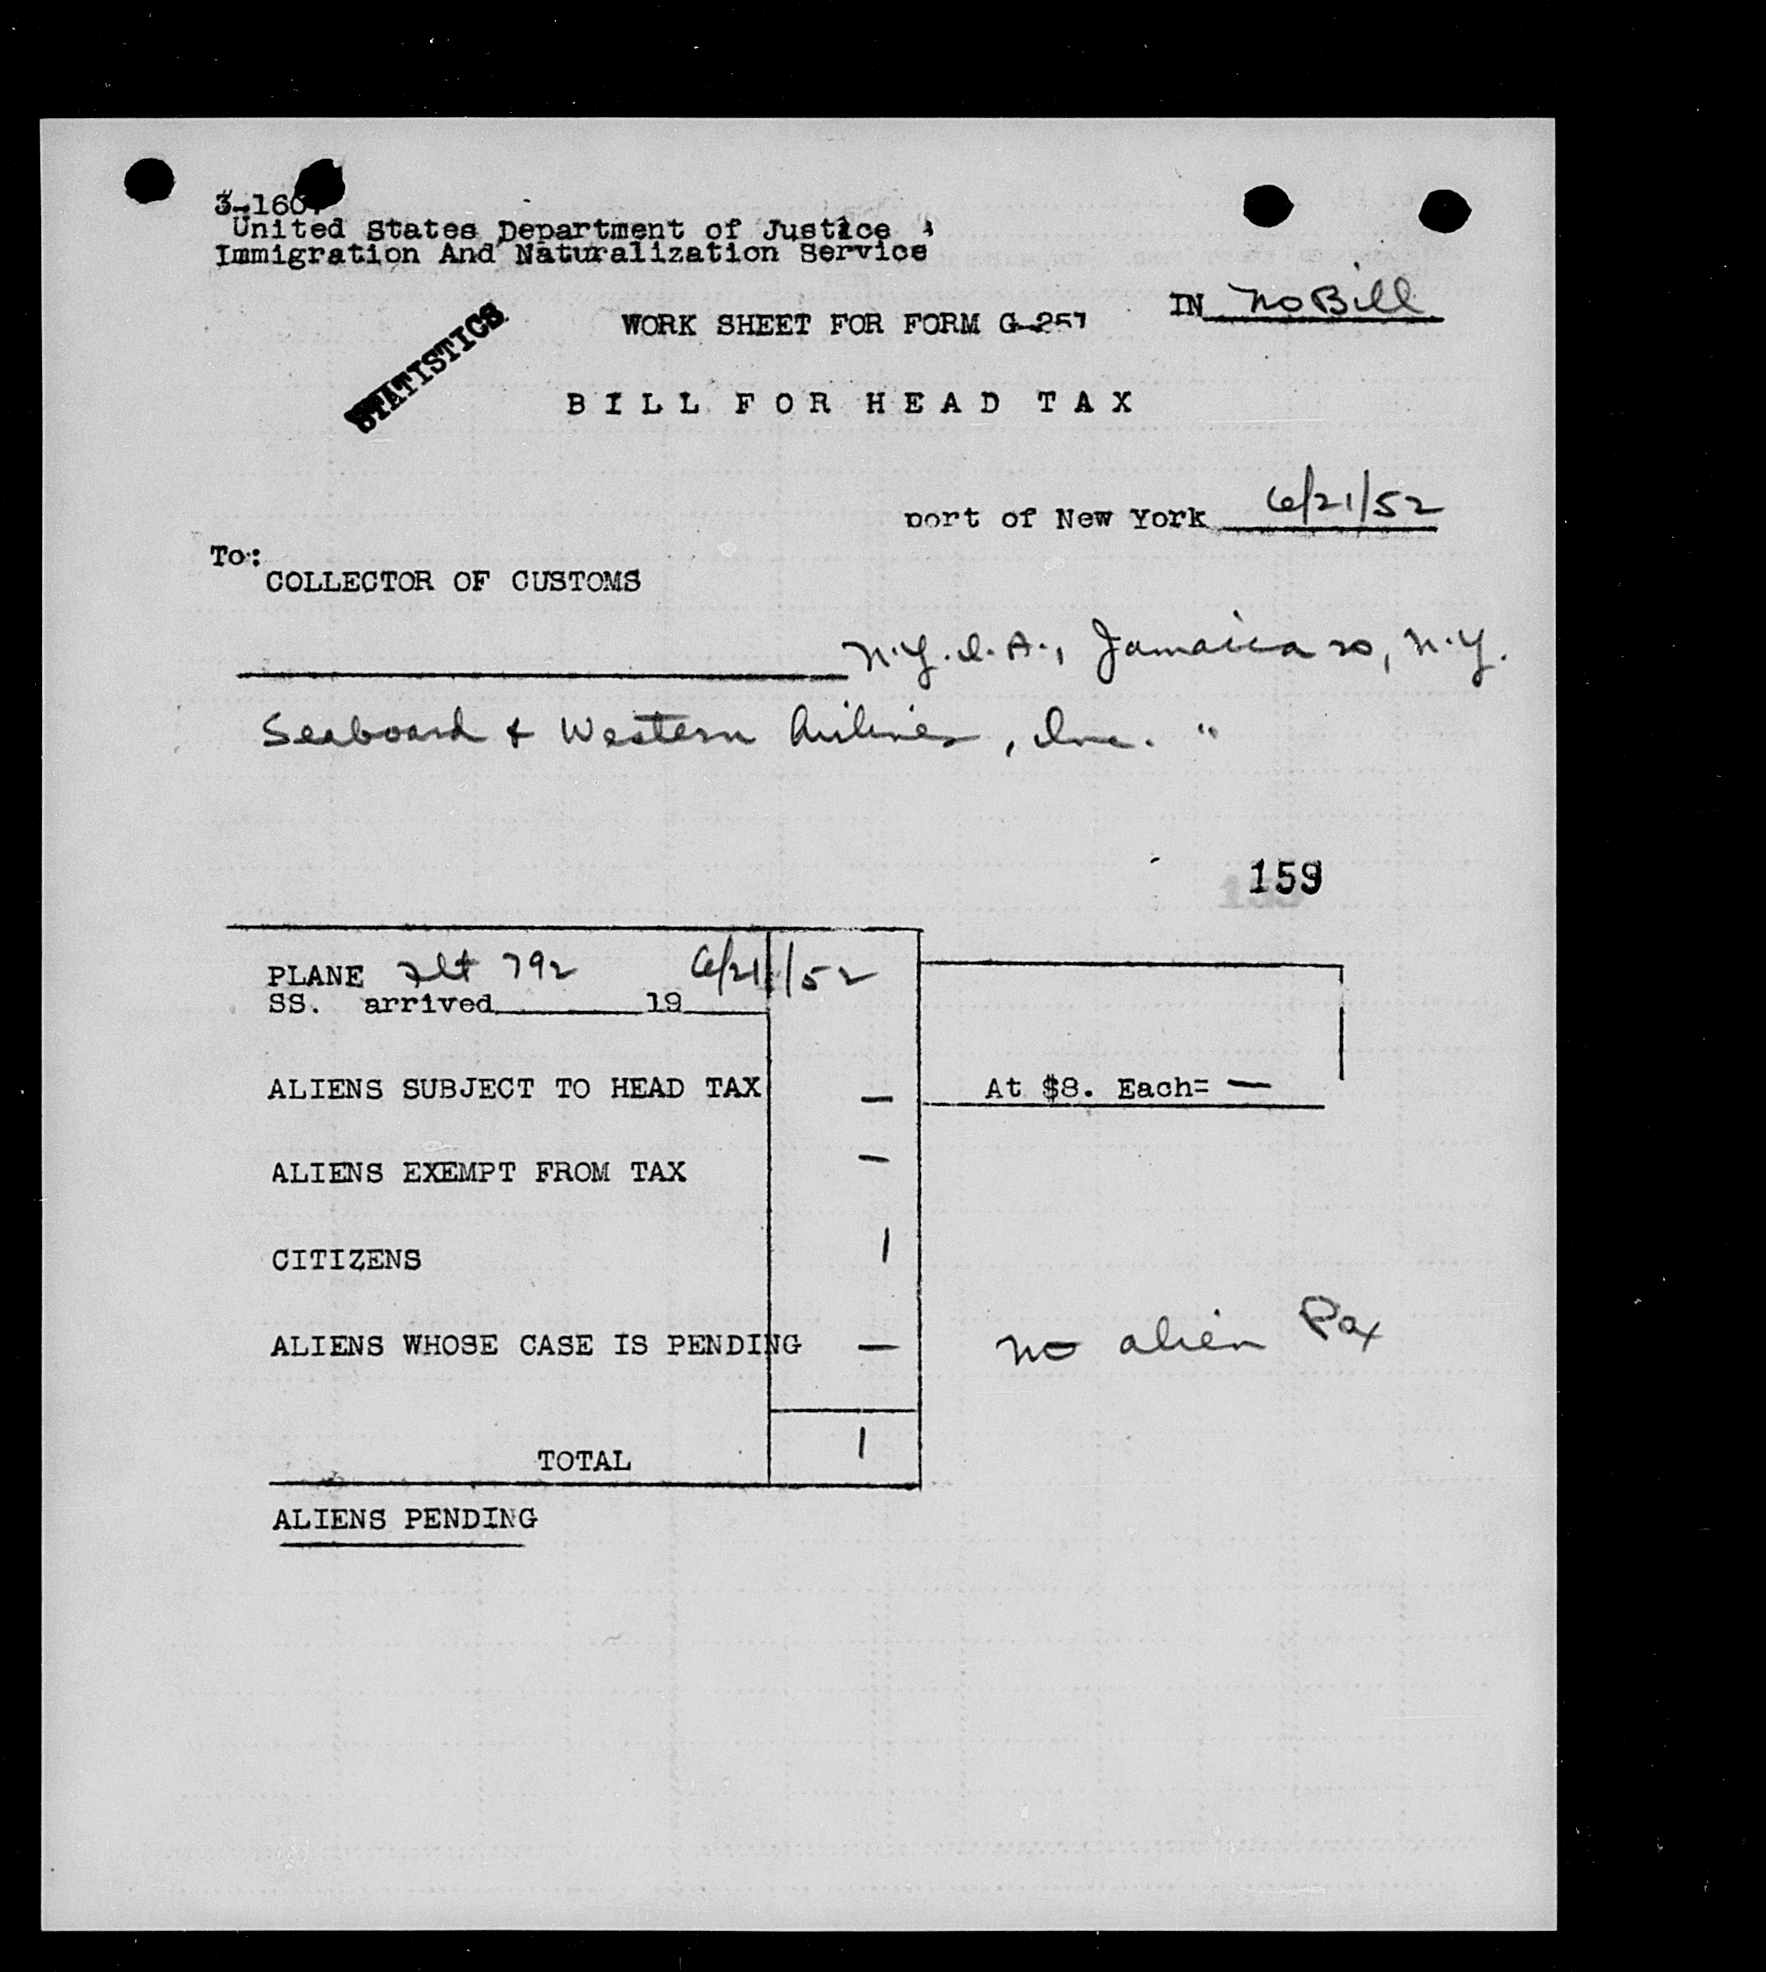 3-1607
United States Department of Justice
Immigration And Naturalization Service
IN No Bill
STATISTICS
WORK SHEET FOR FORM G-257
BILL FOR HEAD TAX
port of New York 6/21/52
To:
COLLECTOR OF CUSTOMS
N.Y.I.A., Jamaica 20, N.Y.
Seaboard & Western Airlines, Inc. "
159
PLANE Flt 792 6/21/52
SS. arrived 19
ALIENS SUBJECT TO HEAD TAX — At $8. Each= —
ALIENS EXEMPT FROM TAX —
CITIZENS 1
ALIENS WHOSE CASE IS PENDING — No alien Pax
TOTAL 1
ALIENS PENDING